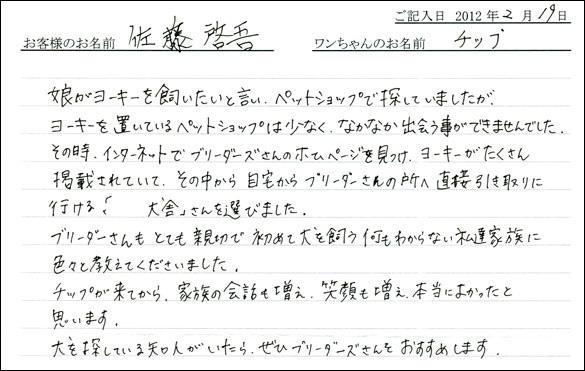 ご記入日 2012年2月19日
お客様のお名前 佐藤啓吾 ワンちゃんのお名前 チップ
娘がヨーキーを飼いたいと言い、ペットショップで探していましたが、
ヨーキーを置いているペットショップは少なく、なかなか出会う事ができませんでした。
その時、インターネットでブリーダーズさんのホムページを見つけ、ヨーキーがたくさん
掲載されていて、その中から自宅からブリーダーさんの所へ直接引き取りに
行ける「犬舎」さんを選びました。
ブリーダーさんもとても親切で初めて犬を飼う何もわからない私達家族に
色々と教えてくださいました。
チップが来てから、家族の会話も増え、笑顔も増え、本当によかったと
思います。
犬を探している知人がいたら、ぜひブリーダーズさんをおすすめします。